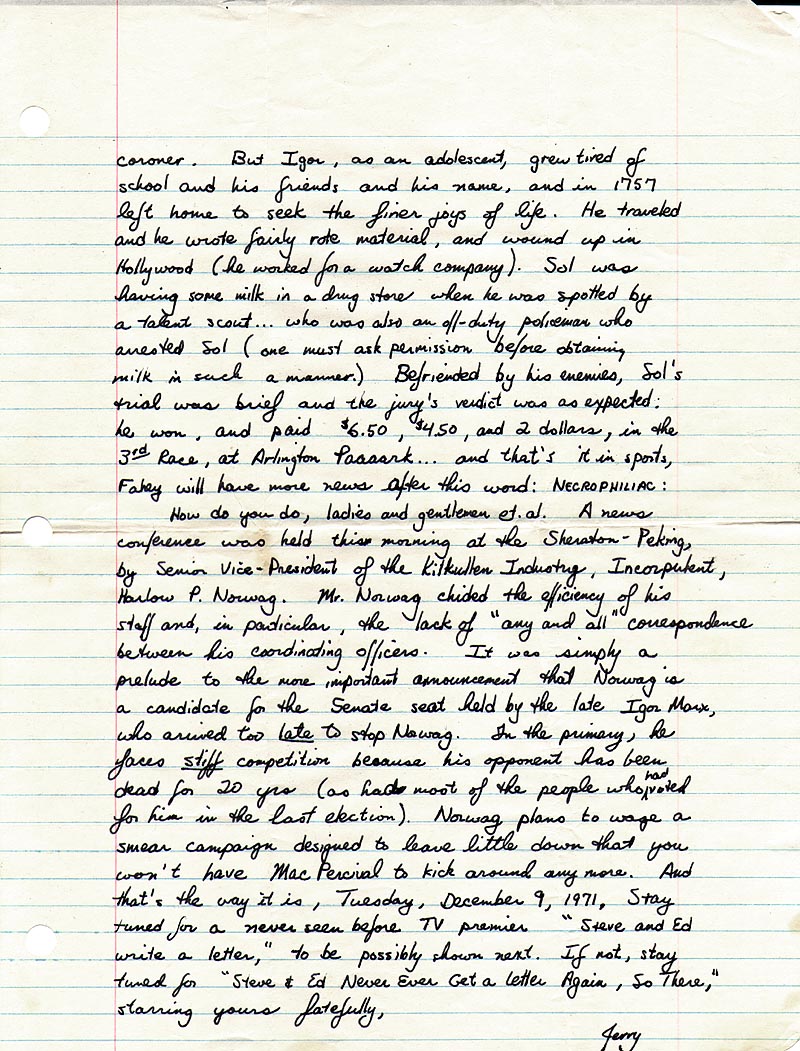 coroner. But Igor, as an adolescent, grew tired of
school and his friends and his name, and in 1757
left home to seek the finer joys of life. He traveled
and he wrote fairly rote material, and wound up in
Hollywood (he worked for a watch company). Sol was
having some milk in a drug store when he was spotted by
a talent scout... who was also an off-duty policeman who
arrested Sol (one must ask permission before obtaining
milk in such a manner.) Befriended by his enemies, Sol's
trial was brief and the jury's verdict was as expected:
he won, and paid $6.50, $4.50, and 2 dollars, in the
3rd Race, at Arlington Paaaark... and that's it in sports,
Fahey will have more news after this word: NECROPHILIAC:
How do you do, ladies and gentlemen et. al. A news
conference was held this morning at the Sheraton-Peking,
by Senior Vice-President of the Kilkullen Industry, Incorputent,
Harlow P. Norwag. Mr. Norwag chided the efficiency of his
staff and, in particular, the lack of "any and all" correspondence
between his coordinating officers. It was simply a
prelude to the more important announcement that Norwag is
a candidate for the Senate seat held by the late Igor Marx,
who arrived too late to stop Norwag. In the primary, he
faces stiff competition because his opponent has been
dead for 20 yrs (as had most of the people who had voted
for him in the last election). Norwag plans to wage a
smear campaign designed to leave little down that you
won't have Mac Percival to kick around any more. And
that's the way it is, Tuesday, December 9, 1971. Stay
tuned for a never seen before TV premier "Steve and Ed
write a letter," to be possibly shown next. If not, stay
tuned for "Steve & Ed Never Ever Get a letter Again, So There,"
starring yours fatefully,
Jerry